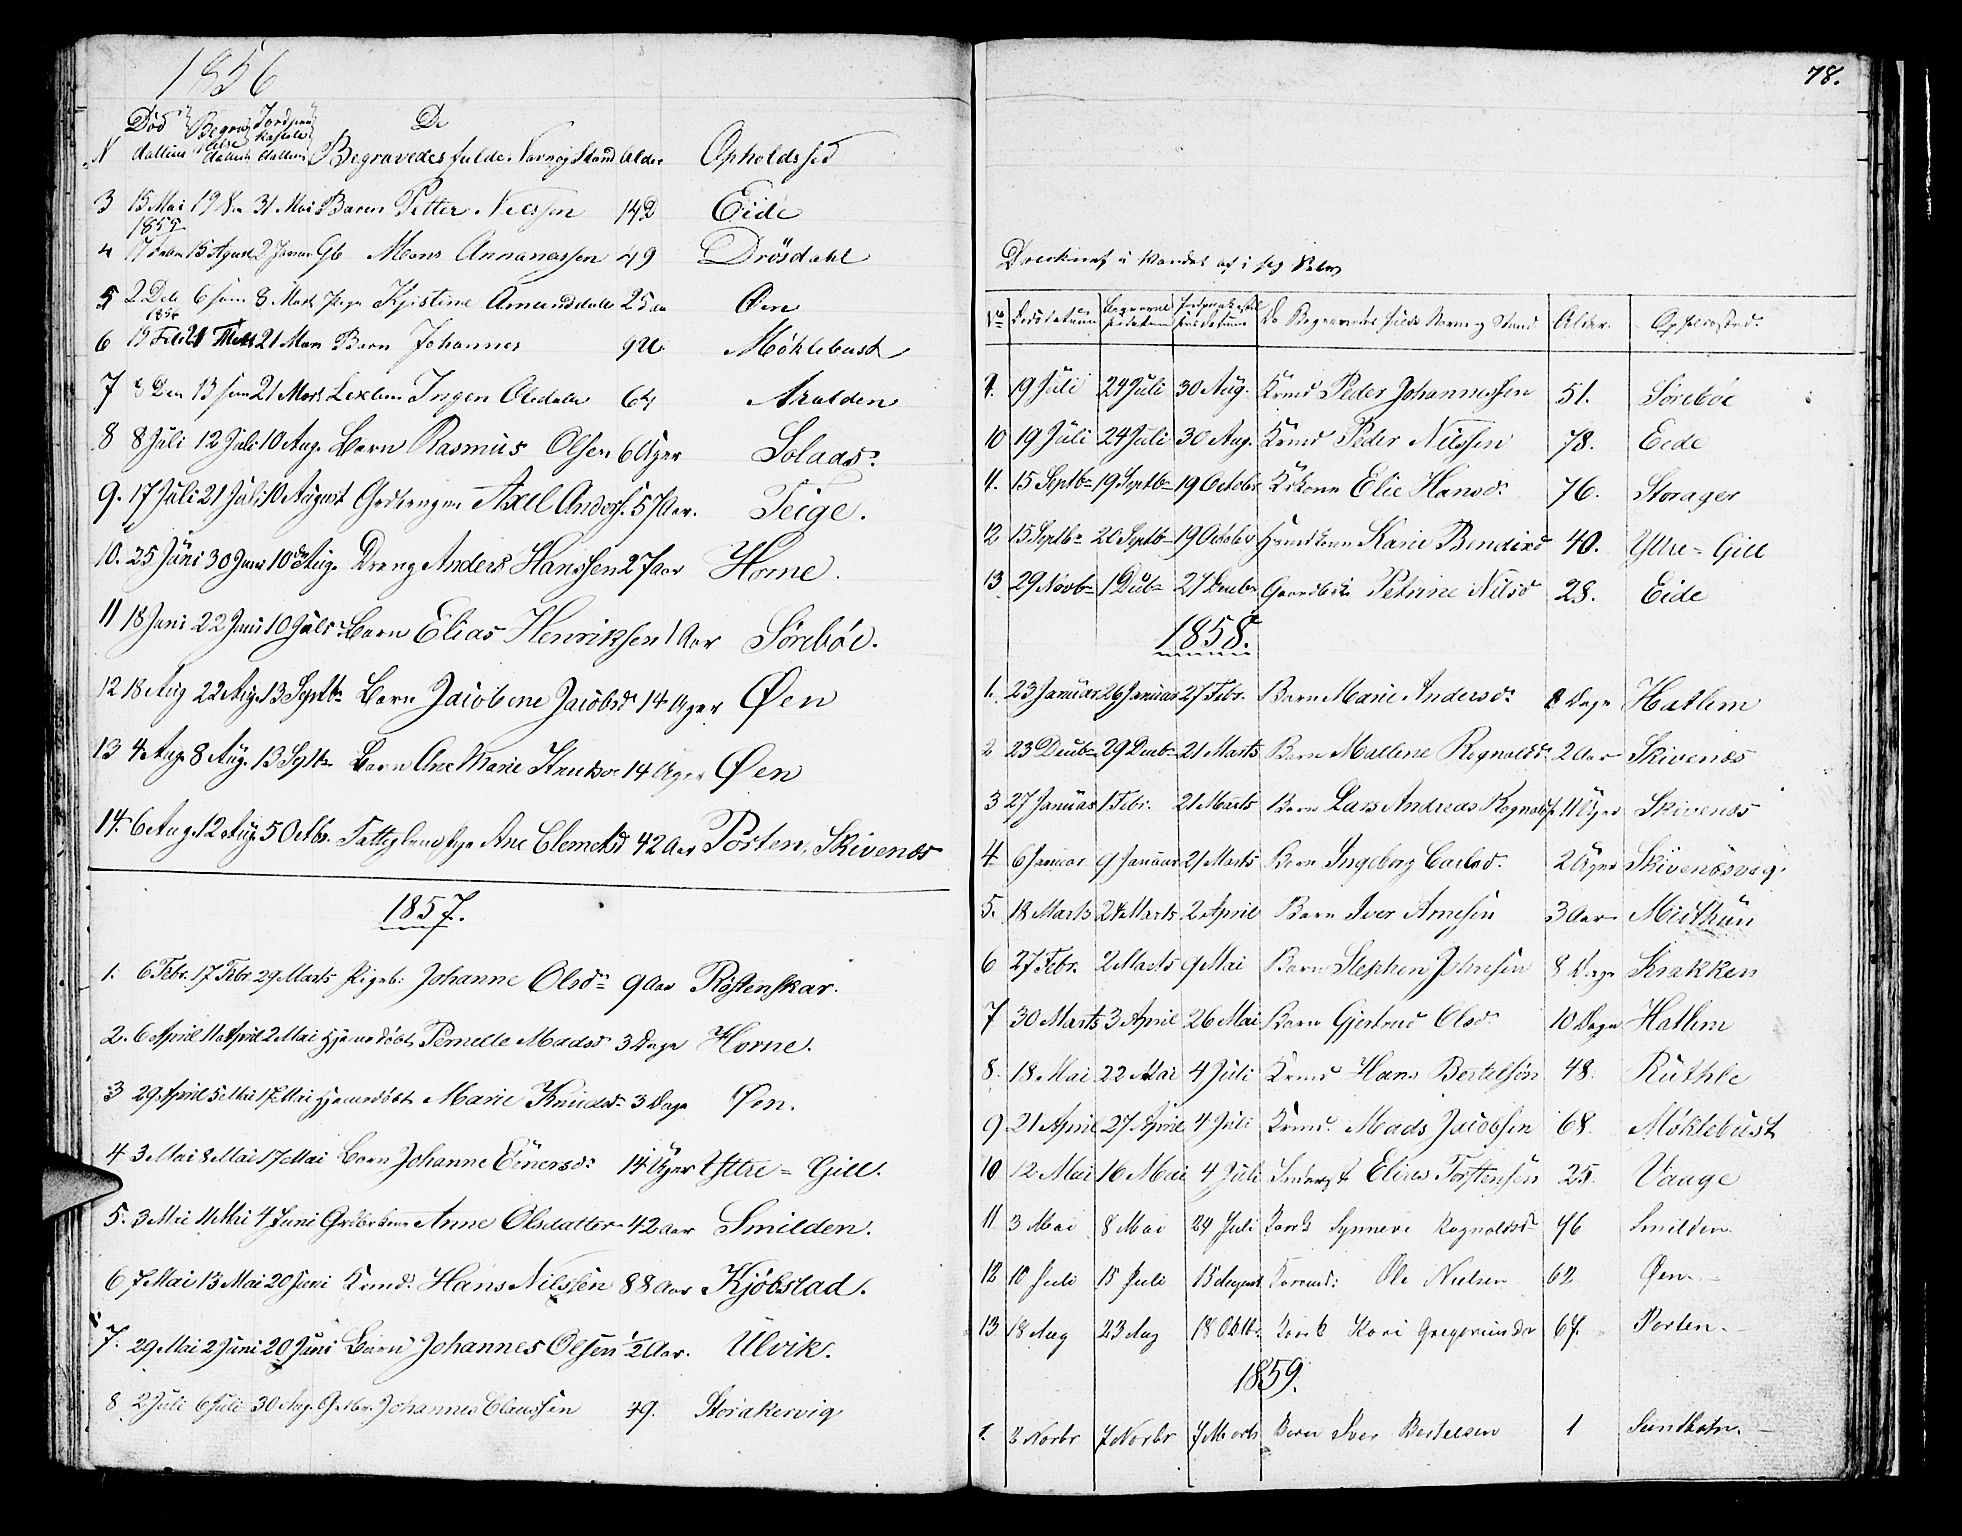 1856
Død Begra Jordpaa
else kastelse De
N datum datum datum Begravedes fulde Navn og Stand Alder Opholdsted
3 15 Mai 19 31 Mai Barn Petter Nielsen 14 D Eide
1857
4 17 15 2 Januar Gb Mons Annanassen 49 Drösdahl
5 2 Dec 6 8 Mart Pige Kjistine Amundsdatter 25 Øen
1856
6 19 Feb 21 21 Mars Barn Johannes 9 U. Møklebust
7 8 Dec 13 21 Mart Inger Olsdatter 64 Aralden
8 8 Juli 12 Juli 10 Aug. Barn Rasmus Olsen 6 Uger Soladr.
9. 17 Juli 21 Juli 10 August Axel Anders. 57 Aar. Teige.
10. 25 Juni 30 Juni 10 Aug. Dreng Anders Hanssen 27 aar Horne.
11 18 Juni 22 Juni 10 Juli Barn Elias Henriksen 1 Aar Sörebôe.
12 18 Aug 22 Aug. 13 Septbr Barn Jacobene Jacobsdr 14 Uger Øen
13 4 Aug. 8 Aug. 13 Septbr Barn Ane Marie 14 Uger Øen
14. 6 Aug. 12 Aug. 5 Octbr. Ane Clemetsd 42 Aar Porten, Skivenæs
1857.
1. 6 Febr. 17 Febr. 29 Marts Pigeb: Johanne Olsdr 9 aar Rystenskar.
2. 6 April 11 April 2 Mai Hjemedöbt Pernelle Madsd 3 Dage Horne.
3 29 April 5 Mai 17 Mai Hjemedöbt Marie Knudsdr 3 Dage Øen.
4 3 Mai 8 Mai 17 Mai Barn Johanne Einersdr 14 Uger Yttre = Gill.
5. 3 Mai 11 Mai 4 Juni Anne Olsdatter 42 aar Smilden.
6 7 Mai 13 Mai 20 Juni Krmd. Hans Nilssen 88 Aar Kjöbstad.
7. 29 Mai 2 Juni 20 Juni Barn Johannes Olsen 1/2 Aar. Ulvik.
8 2 Juli 6 Juli 30 Aug. Johannes Claussen 49. Storakervig
78.
No Dödsdatum De Begravedes fulde Navn og Stand Alder. Opholdssted.
9. 19 Juli 24 Juli 30 Aug. Krmd Peder Johannessen 51. Sörebôe
10 19 Juli 24 Juli 30 Aug. Krmd Peder Nilssen 78. Eide
11. 15 Septbr 19 Septbr 19 Octobr Krkone Elie Hansdr 76. Storager
12 15 Septbr 20 Septbr 19 Octobr Karie Bendixd 40. Yttre = Gill
13. 29 Novbr 1 Decbr 27 Decembr Petrine Nilsd 28. Eide
1858.
1. 23 Januar 26 Januar 27 Febr. Barn Marie Andersdr 8 Dage Hatlem
2 23 Decbr 29 Decbr 21 Marts Barn Mallene Rognaldsdr 2 Aar Skivenæs
3 27 Januar 1 Febr. 21 Marts Barn Lars Andreas Rognalds. 11 Uger Skivenæs
4 6 Januar 9 Januar 21 Marts Barn Ingeborg Carlsdr. 2 Uger Skivenæsvig.
5. 18 Marts 24 Marts 2 April Barn Iver Arnesen 3 Aar Midthun
6 27 Febr. 2 Marts 9 Mai Barn Stephen Johnsen 8 Dage Krakken
7 30 Marts 3 April 26 Mai Barn Gjertrud Olsdr 10 Dage Hatlem
8. 18 Mai 22 Mai 4 Juli Krmd Hans Bertelsen 48. Ruthle
9 21 April 27 April 4 Juli Krmd. Mads Jacobsen 68. Møklebust
10 12 Mai 16 Mai 4 Juli Elias Torstensen 25. Vaage
11 3 Mai 8 Mai 24 Juli Synneve Rognaldsdr 46 Smilden.
12 10 Juli 15 Juli 15 August Ole Nielsen 62 Øen.
13 18 Aug 23 Aug 18 Oktbr Kari Gregoriusdr 67. Porten.
1859.
1. 2 Novbr 7 Novbr 7 Marts Barn Iver Bertelsen 1